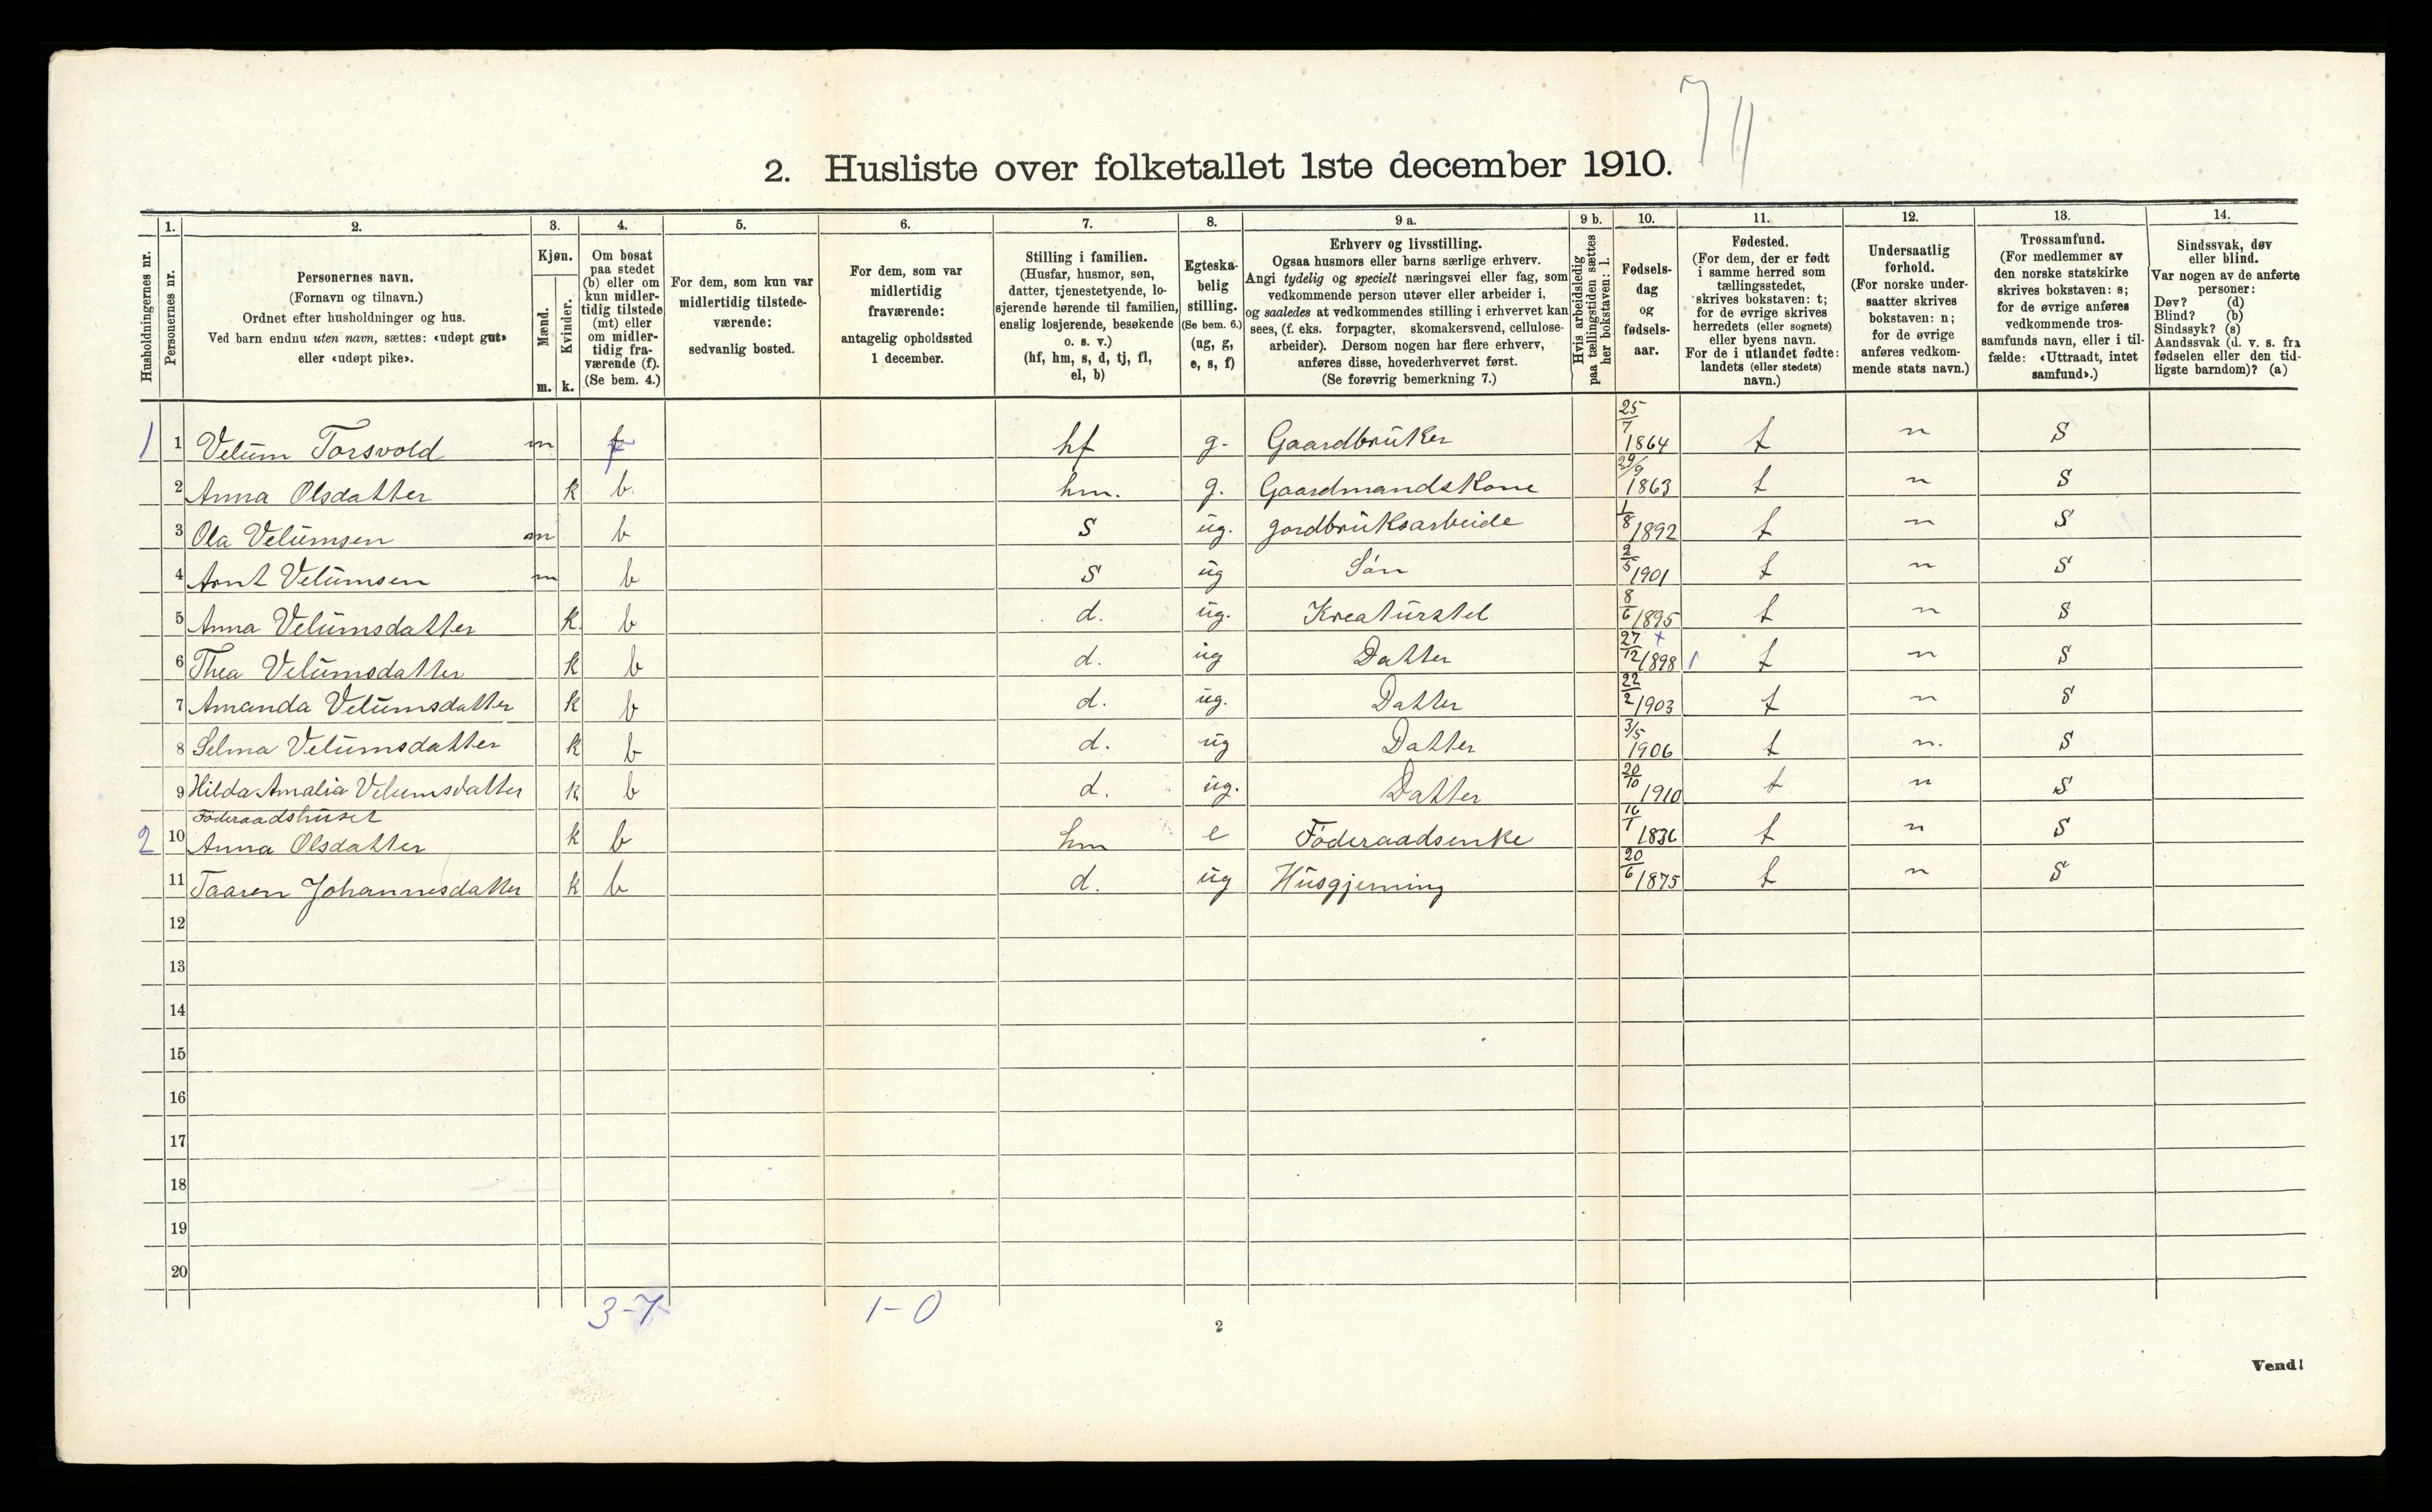 7 11
2. Husliste over folketallet 1ste december 1910.
1. 2. 3. 4. 5. 6. 7. 8. 9 a. 9 b. 10. 11. 12. 13. 14.
Husholdningernes nr.
Personernes nr.
Personernes navn.
(Fornavn og tilnavn.)
Ordnet efter husholdninger og hus.
Ved barn endnu uten navn, sættes: «udøpt gut»
eller «udøpt pike».
Kjøn.
Mænd.
Kvinder.
m. k.
Om bosat
paa stedet
(b) eller om
kun midler-
tidig tilstede
(mt) eller
om midler-
tidig fra-
værende (f).
(Se bem. 4.)
For dem, som kun var
midlertidig tilstede-
værende:
sedvanlig bosted.
For dem, som var
midlertidig
fraværende:
antagelig opholdssted
1 december.
Stilling i familien.
(Husfar, husmor, søn,
datter, tjenestetyende, lo-
sjerende hørende til familien,
enslig losjerende, besøkende
o. s. v.)
(hf, hm, s, d, tj, fl,
el, b)
Egteska-
belig
stilling.
(Se bem. 6.)
(ug, g,
e, s, f)
Erhverv og livsstilling.
Ogsaa husmors eller barns særlige erhverv.
Angi tydelig og specielt næringsvei eller fag, som
vedkommende person utøver eller arbeider i,
og saaledes at vedkommendes stilling i erhvervet kan
sees, (f. eks. forpagter, skomakersvend, cellulose-
arbeider). Dersom nogen har flere erhverv,
anføres disse, hovederhvervet først.
(Se forøvrig bemerkning 7.)
Hvis arbeidsledig
paa tællingstiden sættes
her bokstaven: l.
Fødsels-
dag
og
fødsels-
aar.
Fødested.
(For dem, der er født
i samme herred som
tællingsstedet,
skrives bokstaven: t;
for de øvrige skrives
herredets (eller sognets)
eller byens navn.
For de i utlandet fødte:
landets (eller stedets)
navn.)
Undersaatlig
forhold.
(For norske under-
saatter skrives
bokstaven: n;
for de øvrige
anføres vedkom-
mende stats navn.)
Trossamfund.
(For medlemmer av
den norske statskirke
skrives bokstaven: s;
for de øvrige anføres
vedkommende tros-
samfunds navn, eller i til-
fælde: «Uttraadt, intet
samfund».)
Sindssvak, døv
eller blind.
Var nogen av de anførte
personer:
Døv? (d)
Blind? (b)
Sindssyk? (s)
Aandssvak (d. v. s. fra
fødselen eller den tid-
ligste barndom)? (a)
1 1 Velum Torsvold m f hf g. Gaardbruker 25/7 1864 t n S
2 Anna Olsdatter k b. hm. g. Gaardmandskone 29/9 1863 t n S
3 Ola Velumsen m b S ug. jordbruksarbeide 1/8 1892 t n S
4 Arnt Velumsen m b S ug Sön 2/5 1901 t n S
5 Anna Velumsdatter k. b d. ug. Kreaturstel 8/6 1895 t n S
6 Thea Velumsdatter k b d. ug Datter 27/12 1898 x 1 t n S
7 Amanda Velumsdatter k b d. ug. Datter 22/2 1903 t n S
8 Selma Velumsdatter k b d. ug Datter 3/5 1906 t n. S
9 Hilda Amalia Velumsdatter k b d. ug. Datter 20/10 1910 t n S
Föderaadshuset
2 10 Anna Olsdatter k b hm e Föderaadsenke 16/1 1836 t n S
11 Taaren Johannesdatter k b d. ug Husgjerning 20/6 1875 t n S
12
13
14
15
16
17
18
19
20
3-7 1-0
2
Vend!